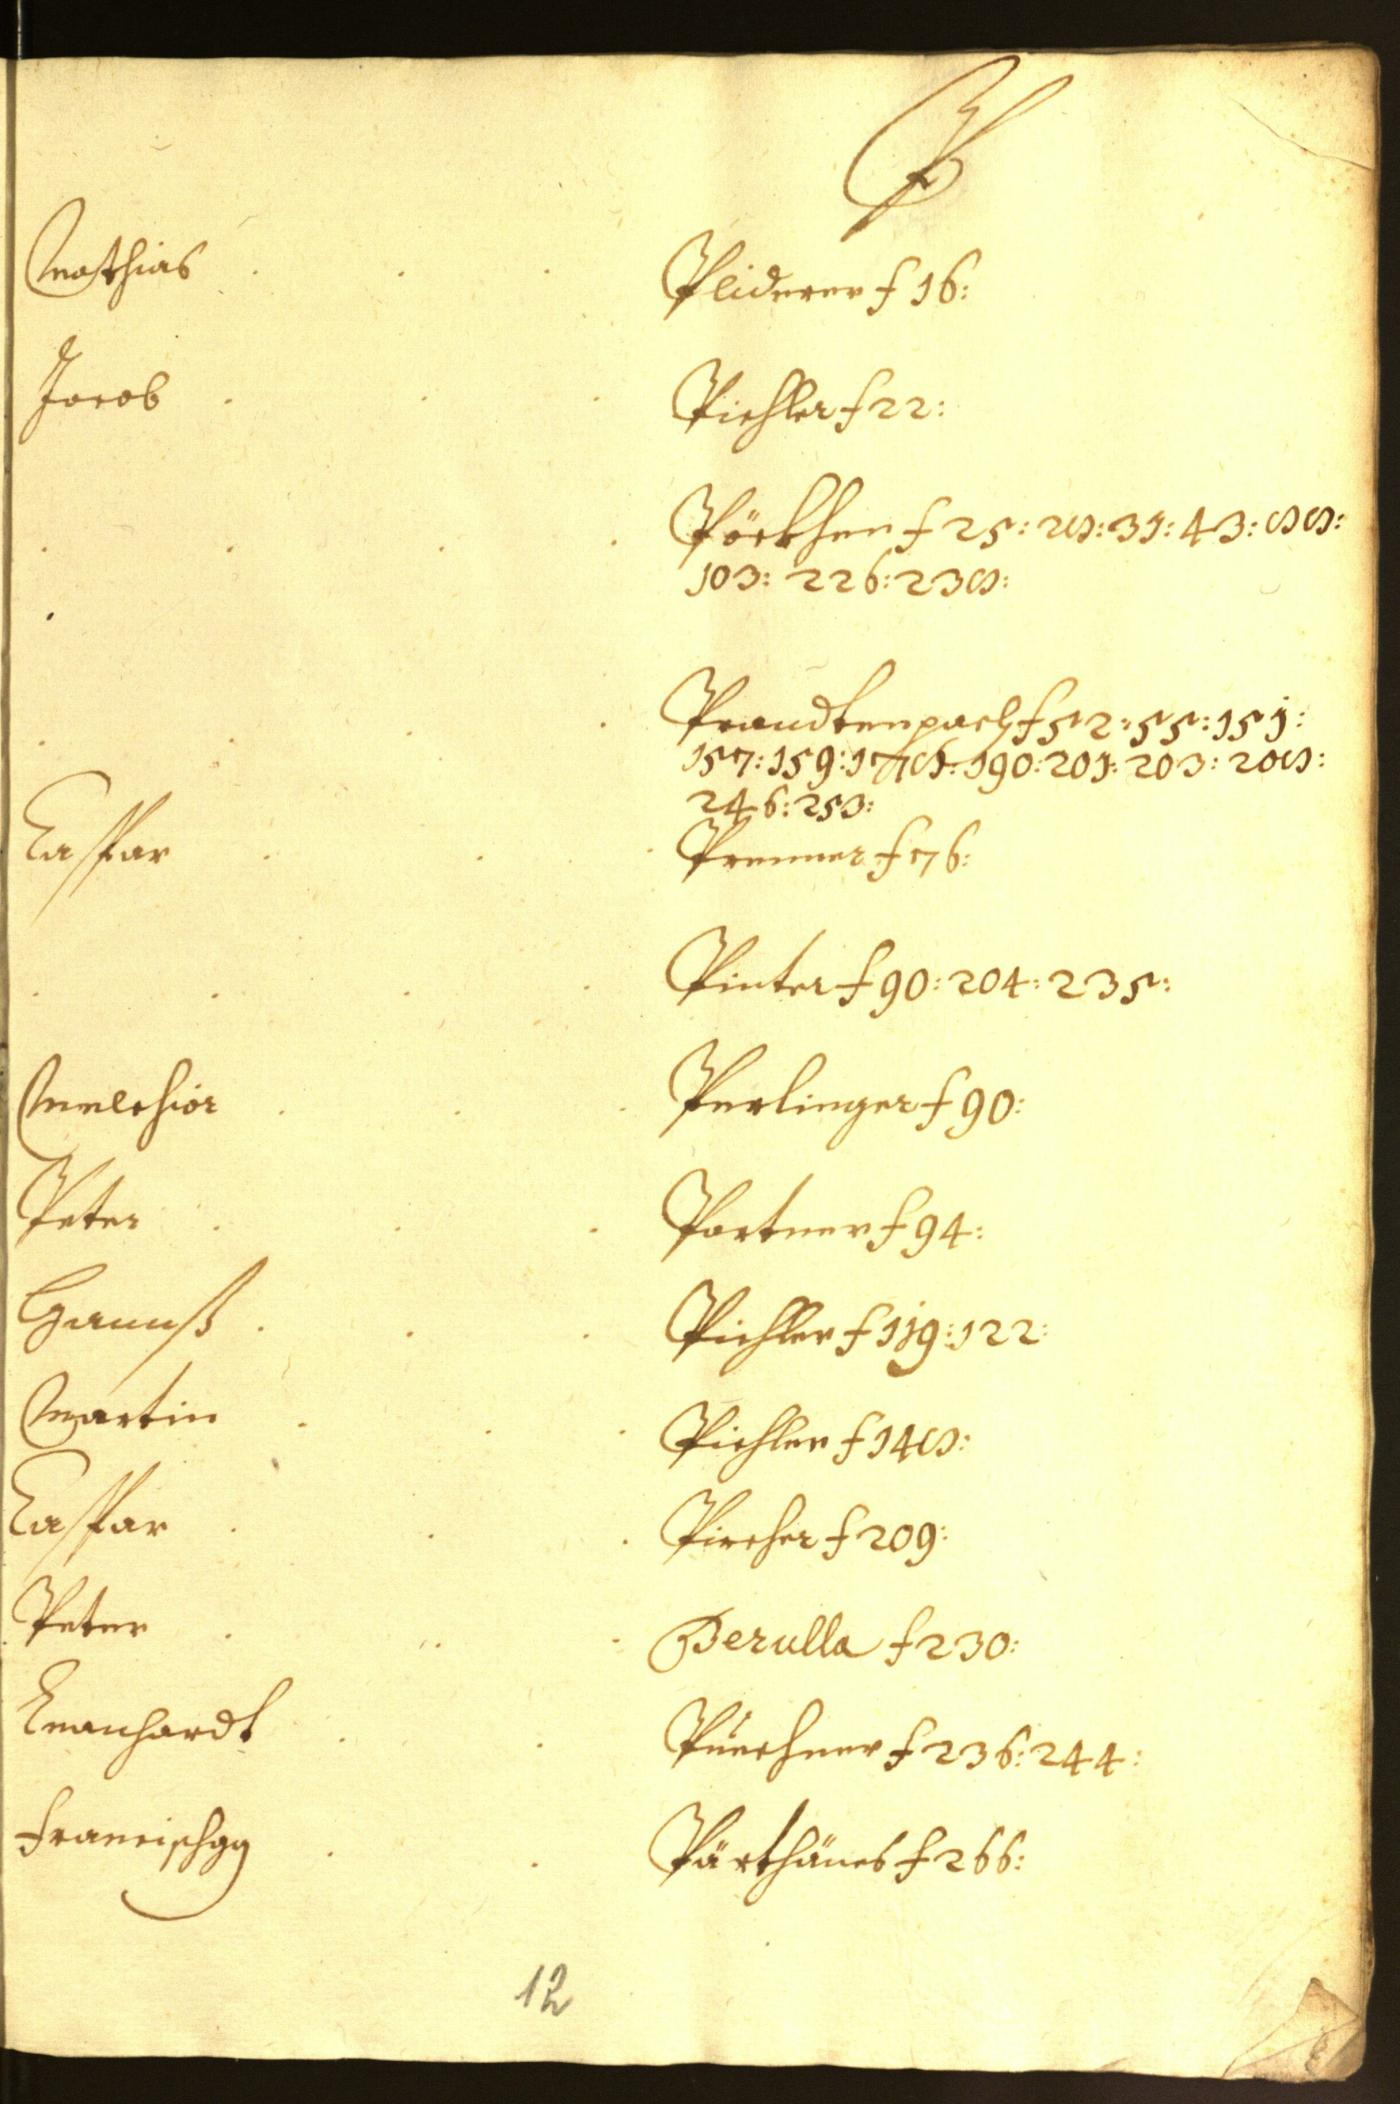 P
Mathias . . . Pliderer f 16:
Jacob . . . Pichler f 22:
. . . . Pöckhen f 25: 28: 31: 43: 88:
103: 226: 238:
. . . . Prandtenpach f 52: 55: 151:
157: 159: 178: 190: 201: 203: 208:
246: 253:
Caspar . . . Prenner f 76:
. . . . Pinter f 90: 204: 235:
Melchior . . . Perlinger f 90:
Peter . . . Portner f 94:
Hannß . . . Pichler f 119: 122:
Martin . . . Pichler f 148:
Caspar . . . Pircher f 209:
Peter . . . Perulla f 230:
Leonhardt . . Puechner f 236: 244:
Francischgg . . Pärthänes f 266:
12